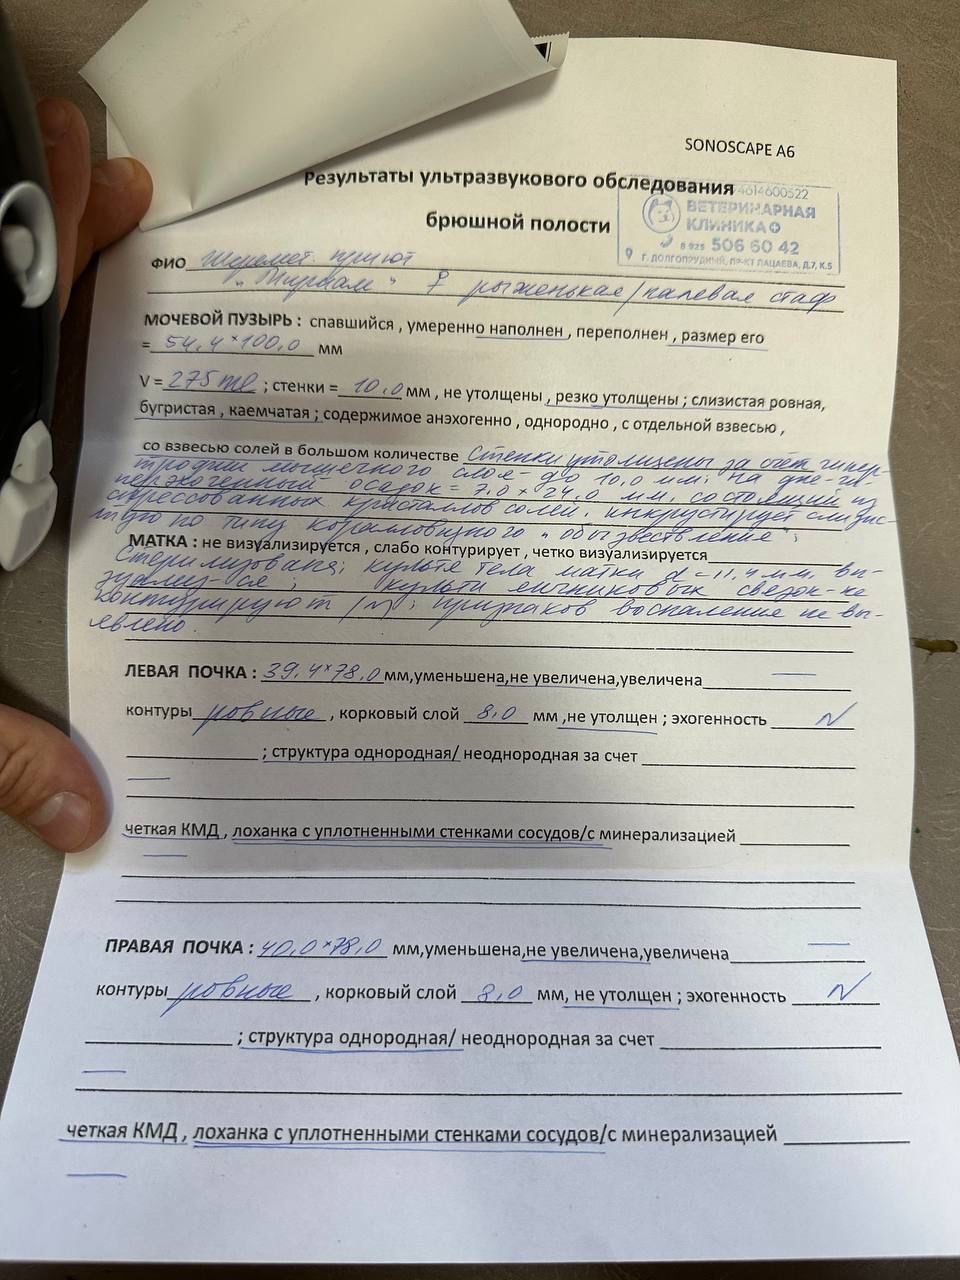 SONOSCAPE A6
Результаты ультразвукового обследования
брюшной полости
4614600522
ВЕТЕРИНАРНАЯ
КЛИНИКА
8 925 506 60 42
Г. ДОЛГОПРУДНЫЙ, ПР-КТ ПАЦАЕВА, Д.7, К.5
ФИО Шеремет. приют
"Мириам" ♀ рыженькая/палевая стаф
МОЧЕВОЙ ПУЗЫРЬ : спавшийся , умеренно наполнен , переполнен , размер его
= 54,4×100,0 мм
V = 275 ml ; стенки = 10,0 мм , не утолщены , резко утолщены ; слизистая ровная,
бугристая , каемчатая ; содержимое анэхогенно , однородно , с отдельной взвесью ,
со взвесью солей в большом количестве Стенки утолщены за счет гипер-
трофии мышечного слоя - до 10,0 мм; на дне - ги-
перэхогенный осадок = 7,0 × 24,0 мм, состоящий из
спрессованных кристаллов солей, инкрустирует слизис-
тую по типу кораллового "обызвествления";
МАТКА : не визуализируется , слабо контурирует , четко визуализируется
Стерилизована; культя тела матки d = 11,4 мм, ви-
зуализ-ся ; культи яичниковых связок - не
контурируют /N/; признаков воспаления не вы-
явлено.
ЛЕВАЯ ПОЧКА : 39,4×78,0 мм,уменьшена,не увеличена,увеличена —
контуры ровные , корковый слой 8,0 мм ,не утолщен ; эхогенность N
; структура однородная/ неоднородная за счет
—
четкая КМД , лоханка с уплотненными стенками сосудов/с минерализацией
—
ПРАВАЯ ПОЧКА : 40,0×78,0 мм,уменьшена,не увеличена,увеличена —
контуры ровные , корковый слой 8,0 мм, не утолщен ; эхогенность N
; структура однородная/ неоднородная за счет
—
четкая КМД , лоханка с уплотненными стенками сосудов/с минерализацией
—